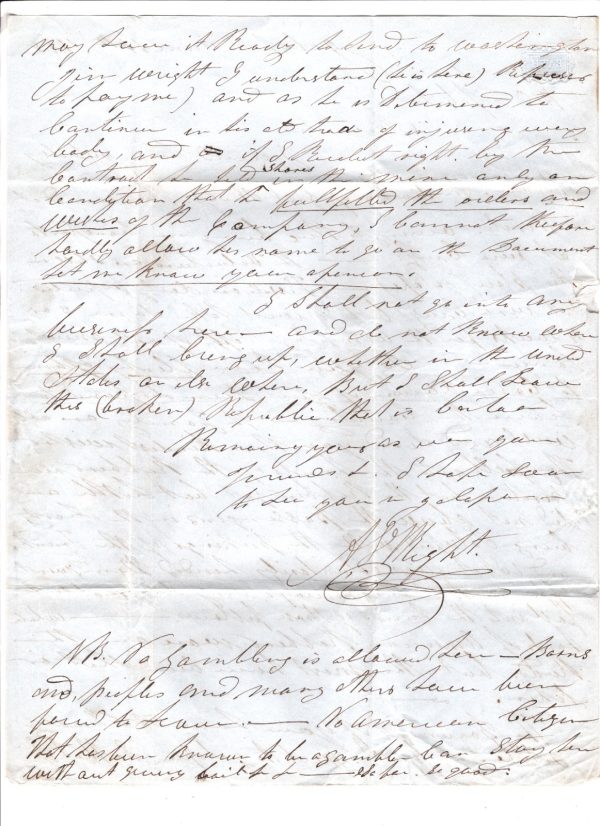 may have it Ready to send to washington
Jim wright I understand (he is here) Refuses
to pay me) and as he is Determened to
Continue in his old trade of injuring every
body and if I Recolect right. by the
Contract he had Shares in the mine only on
Condition that he fullfilled the orders and
wishes of the Company, I Cannot therefore
hardly allow his name to go on the Document
let me know your openion.
I Shall not go into any
business here and do not Know where
I Shall bring up, whether in the United
States or else where, But I Shall Leave
this (broken) Republic that is Certain
Remaing yours as ever your
friend &. I hope soon
to see you in
Wright.
NB. No Gambling is allowed here — Barns
and, peoples and many others have been
forced to Leave — No American Citizen
that has been Known to be a gambler Can Stay here
without giving bail & & — so far. so good.